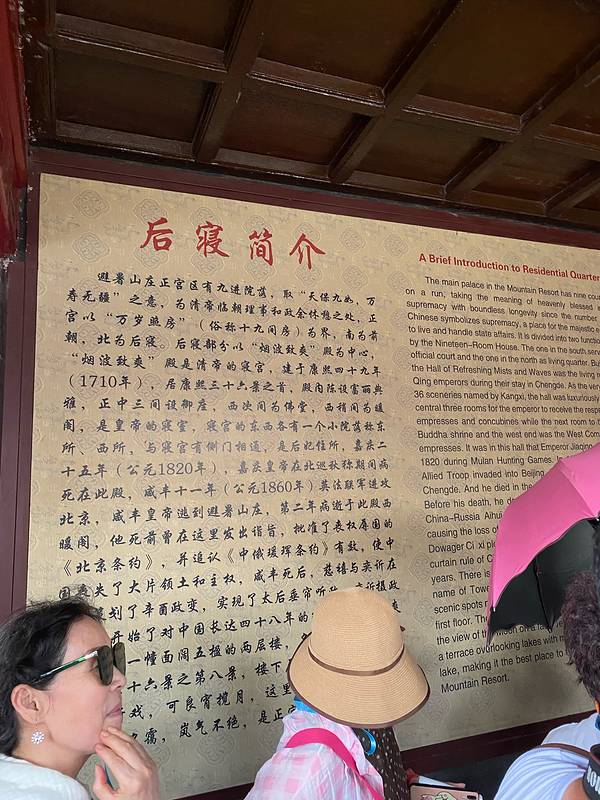 后寝简介
避暑山庄正宫区有九进院落，取“天保九如，万
寿无疆”之意，为清帝临朝理事和政余休憩之处，正
宫以“万岁照房”（俗称十九间房）为界，南为前
朝，北为后寝。后寝部分以“烟波致爽”殿为中心，
“烟波致爽”殿是清帝的寝宫，建于康熙四十九年
（1710年），居康熙三十六景之首，殿内陈设富丽典
雅，正中三间设御座，西次间为佛堂，西稍间为暖
阁，是皇帝的寝室，寝宫的东西各有一个小院落称东
所、西所，与寝宫有侧门相通，是后妃住所，嘉庆二
十五年（公元1820年），嘉庆皇帝在北巡秋狝期间病
死在此殿，咸丰十一年（公元1860年）英法联军进攻
北京，咸丰皇帝逃到避暑山庄，第二年病逝于此殿西
暖阁，他死前曾在这里发出诣旨，批准了丧权辱国的
《北京条约》，并追认《中俄瑷珲条约》有效，使中
国丧失了大片领土和主权，咸丰死后，慈禧与奕䜣在
策划了辛酉政变，实现了太后垂帘听政
开始了对中国长达四十八年的
一幢面阔五楹的两层楼，
十六景之第八景，楼下
戏，可良宵揽月，这里
岚气不绝，是正
A Brief Introduction to Residential Quarter
The main palace in the Mountain Resort has nine cou
on a run, taking the meaning of heavenly blessed
supremacy with boundless longevity since the number
Chinese symbolizes supremacy, a place for the majestic e
to live and handle state affairs. It is divided into two function
by the Nineteen-Room House. The one in the south serve
official court and the one in the north as living quarter. Bui
the Hall of Refreshing Mists and Waves was the living
Qing emperors during their stay in Chengde. As the very
36 sceneries named by Kangxi, the hall was luxuriously
central three rooms for the emperor to receive the resp
empresses and concubines while the next room to
Buddha shrine and the west end was the West Com
empresses. It was in this hall that Emperor Jiaqing
1820 during Mulan Hunting Games. I
Allied Troop invaded into Beijing
Chengde. And he died in the
Before his death, he d
China-Russia Aihui
causing the loss of
Dowager Ci xi pl
curtain rule of C
years. There is
name of Towe
scenic spots
first floor. The
the view of the Moon on a
a terrace overlooking lakes with
lake, making it the best place to
Mountain Resort.